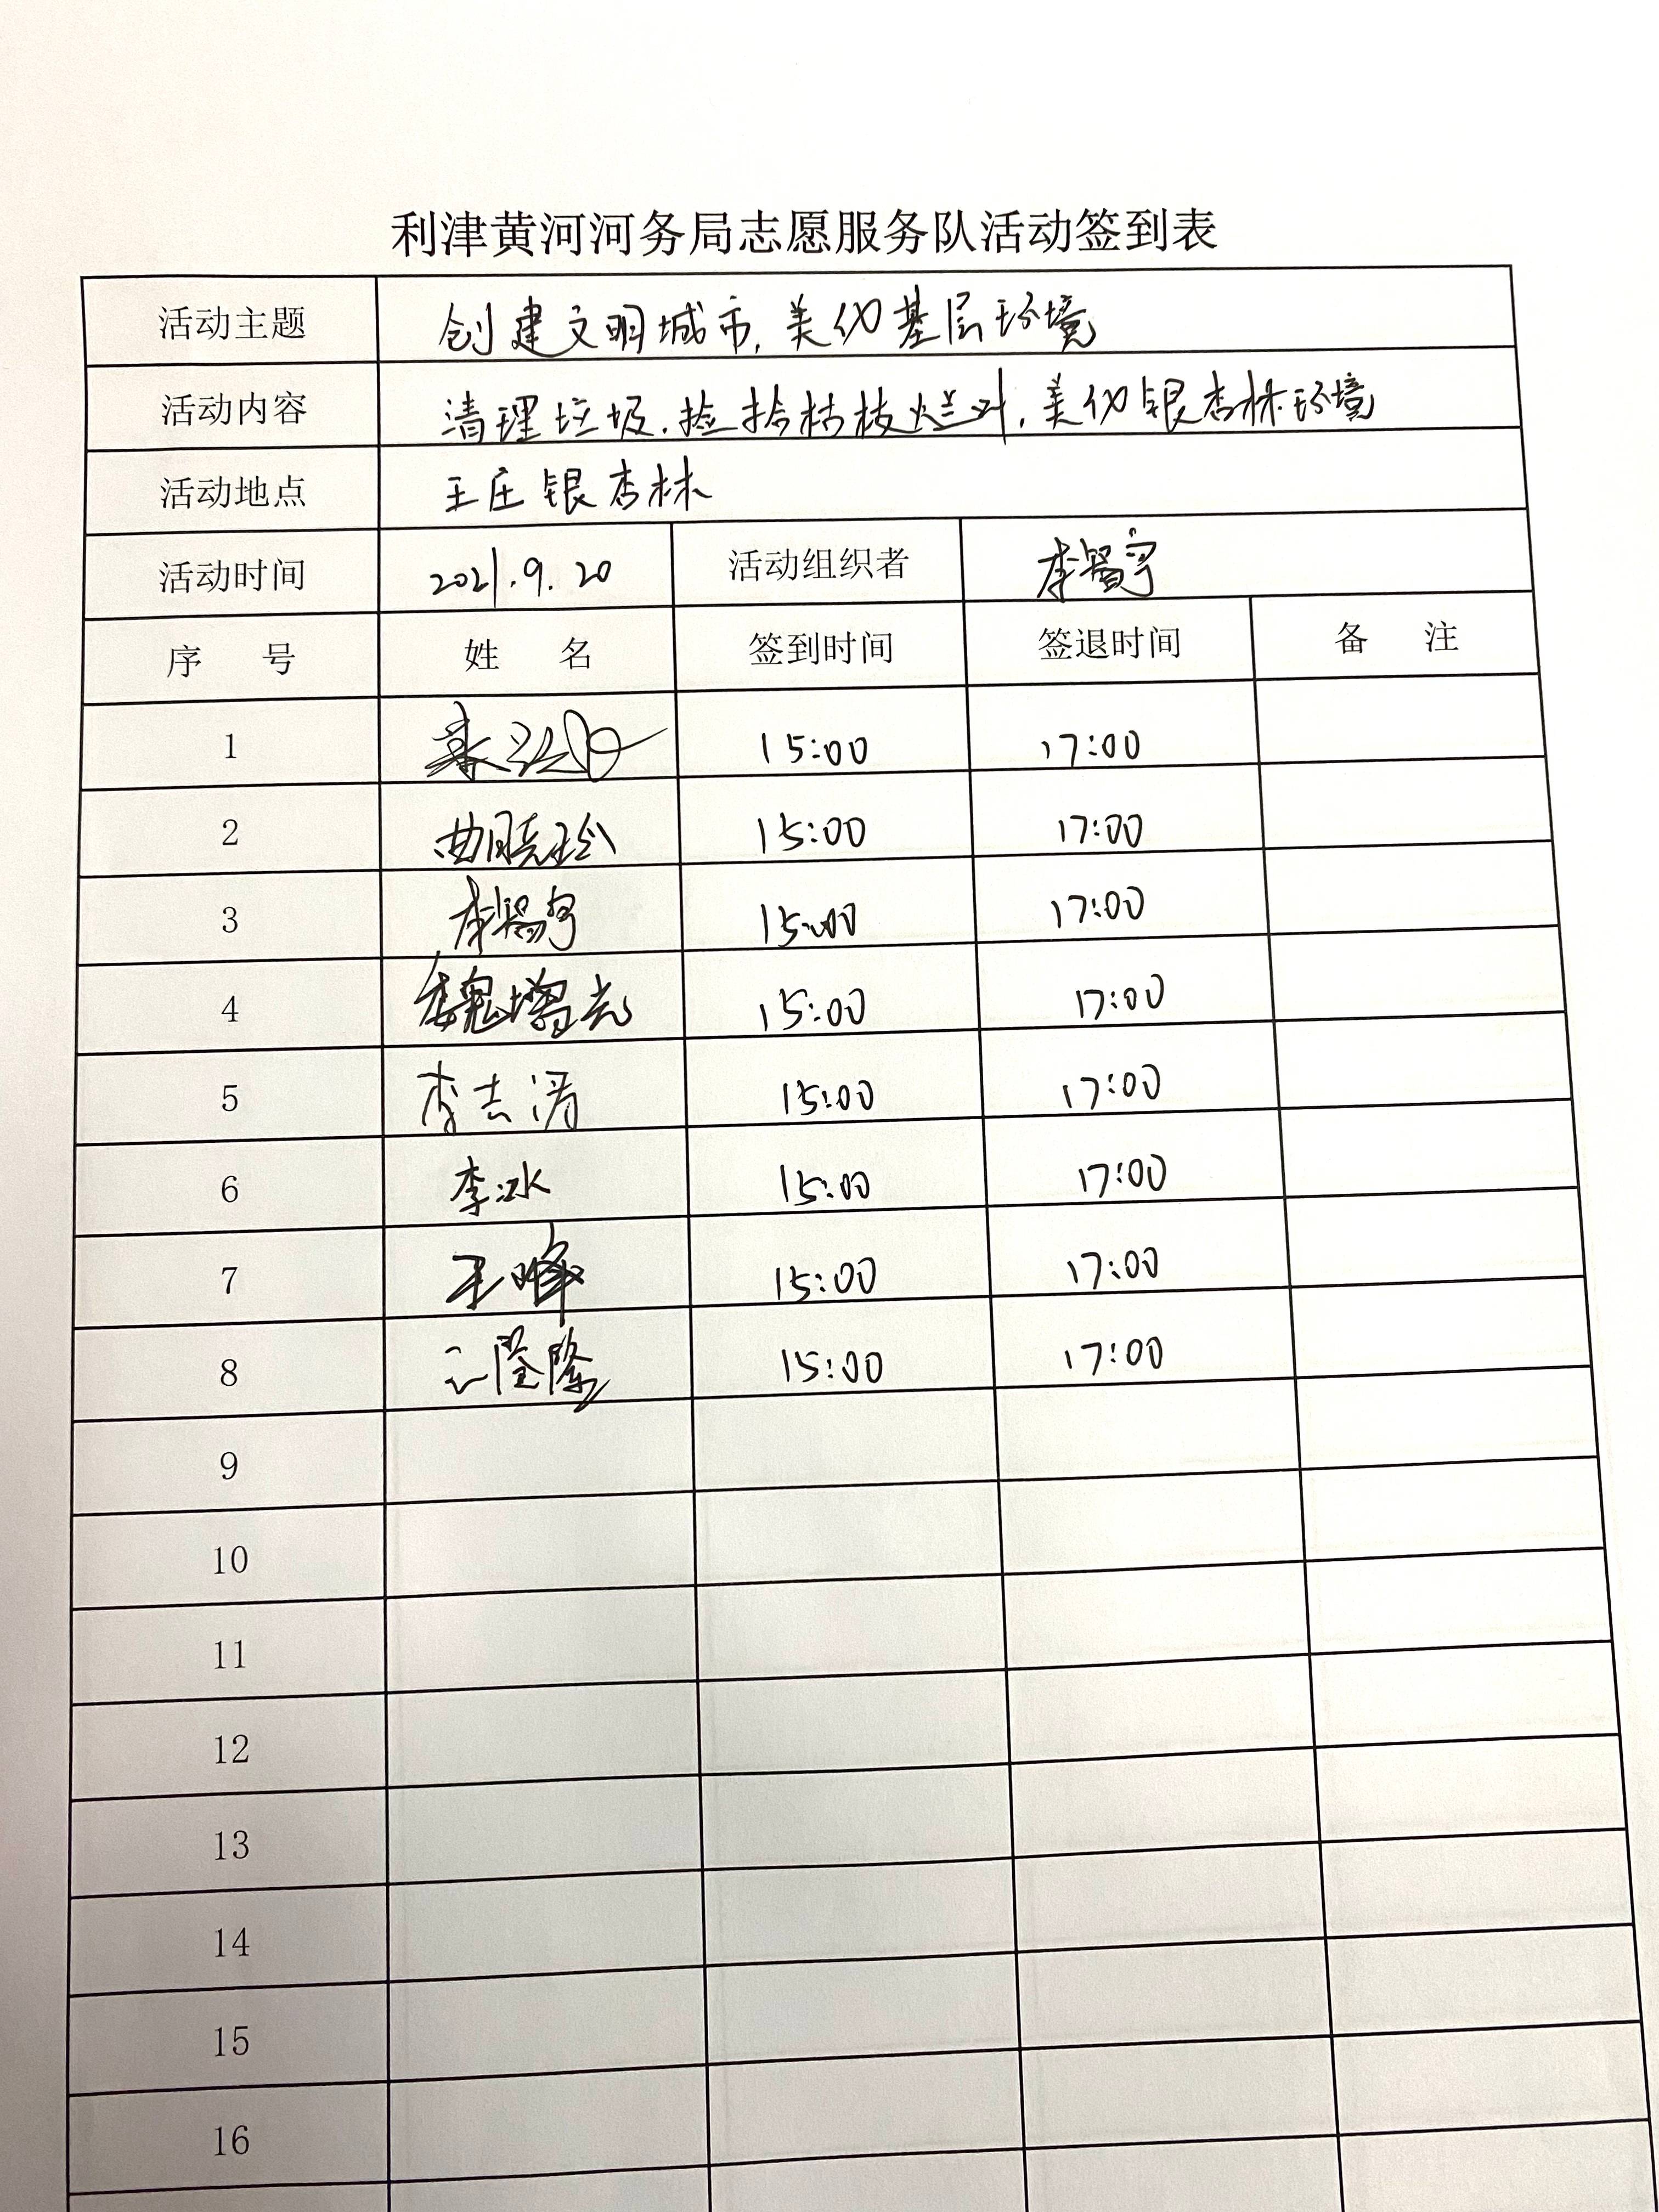 利津黄河河务局志愿服务队活动签到表
活动主题 创建文明城市,美化基层环境
活动内容 清理垃圾,捡拾枯枝烂叶,美化银杏林环境
活动地点 王庄银杏林
活动时间 2021.9.20 活动组织者 李智宇
序号 姓名 签到时间 签退时间 备注
1 15:00 17:00
2 曲晓玲 15:00 17:00
3 李智宇 15:00 17:00
4 魏增光 15:00 17:00
5 李志涛 15:00 17:00
6 李冰 15:00 17:00
7 王峰 15:00 17:00
8 15:00 17:00
9
10
11
12
13
14
15
16